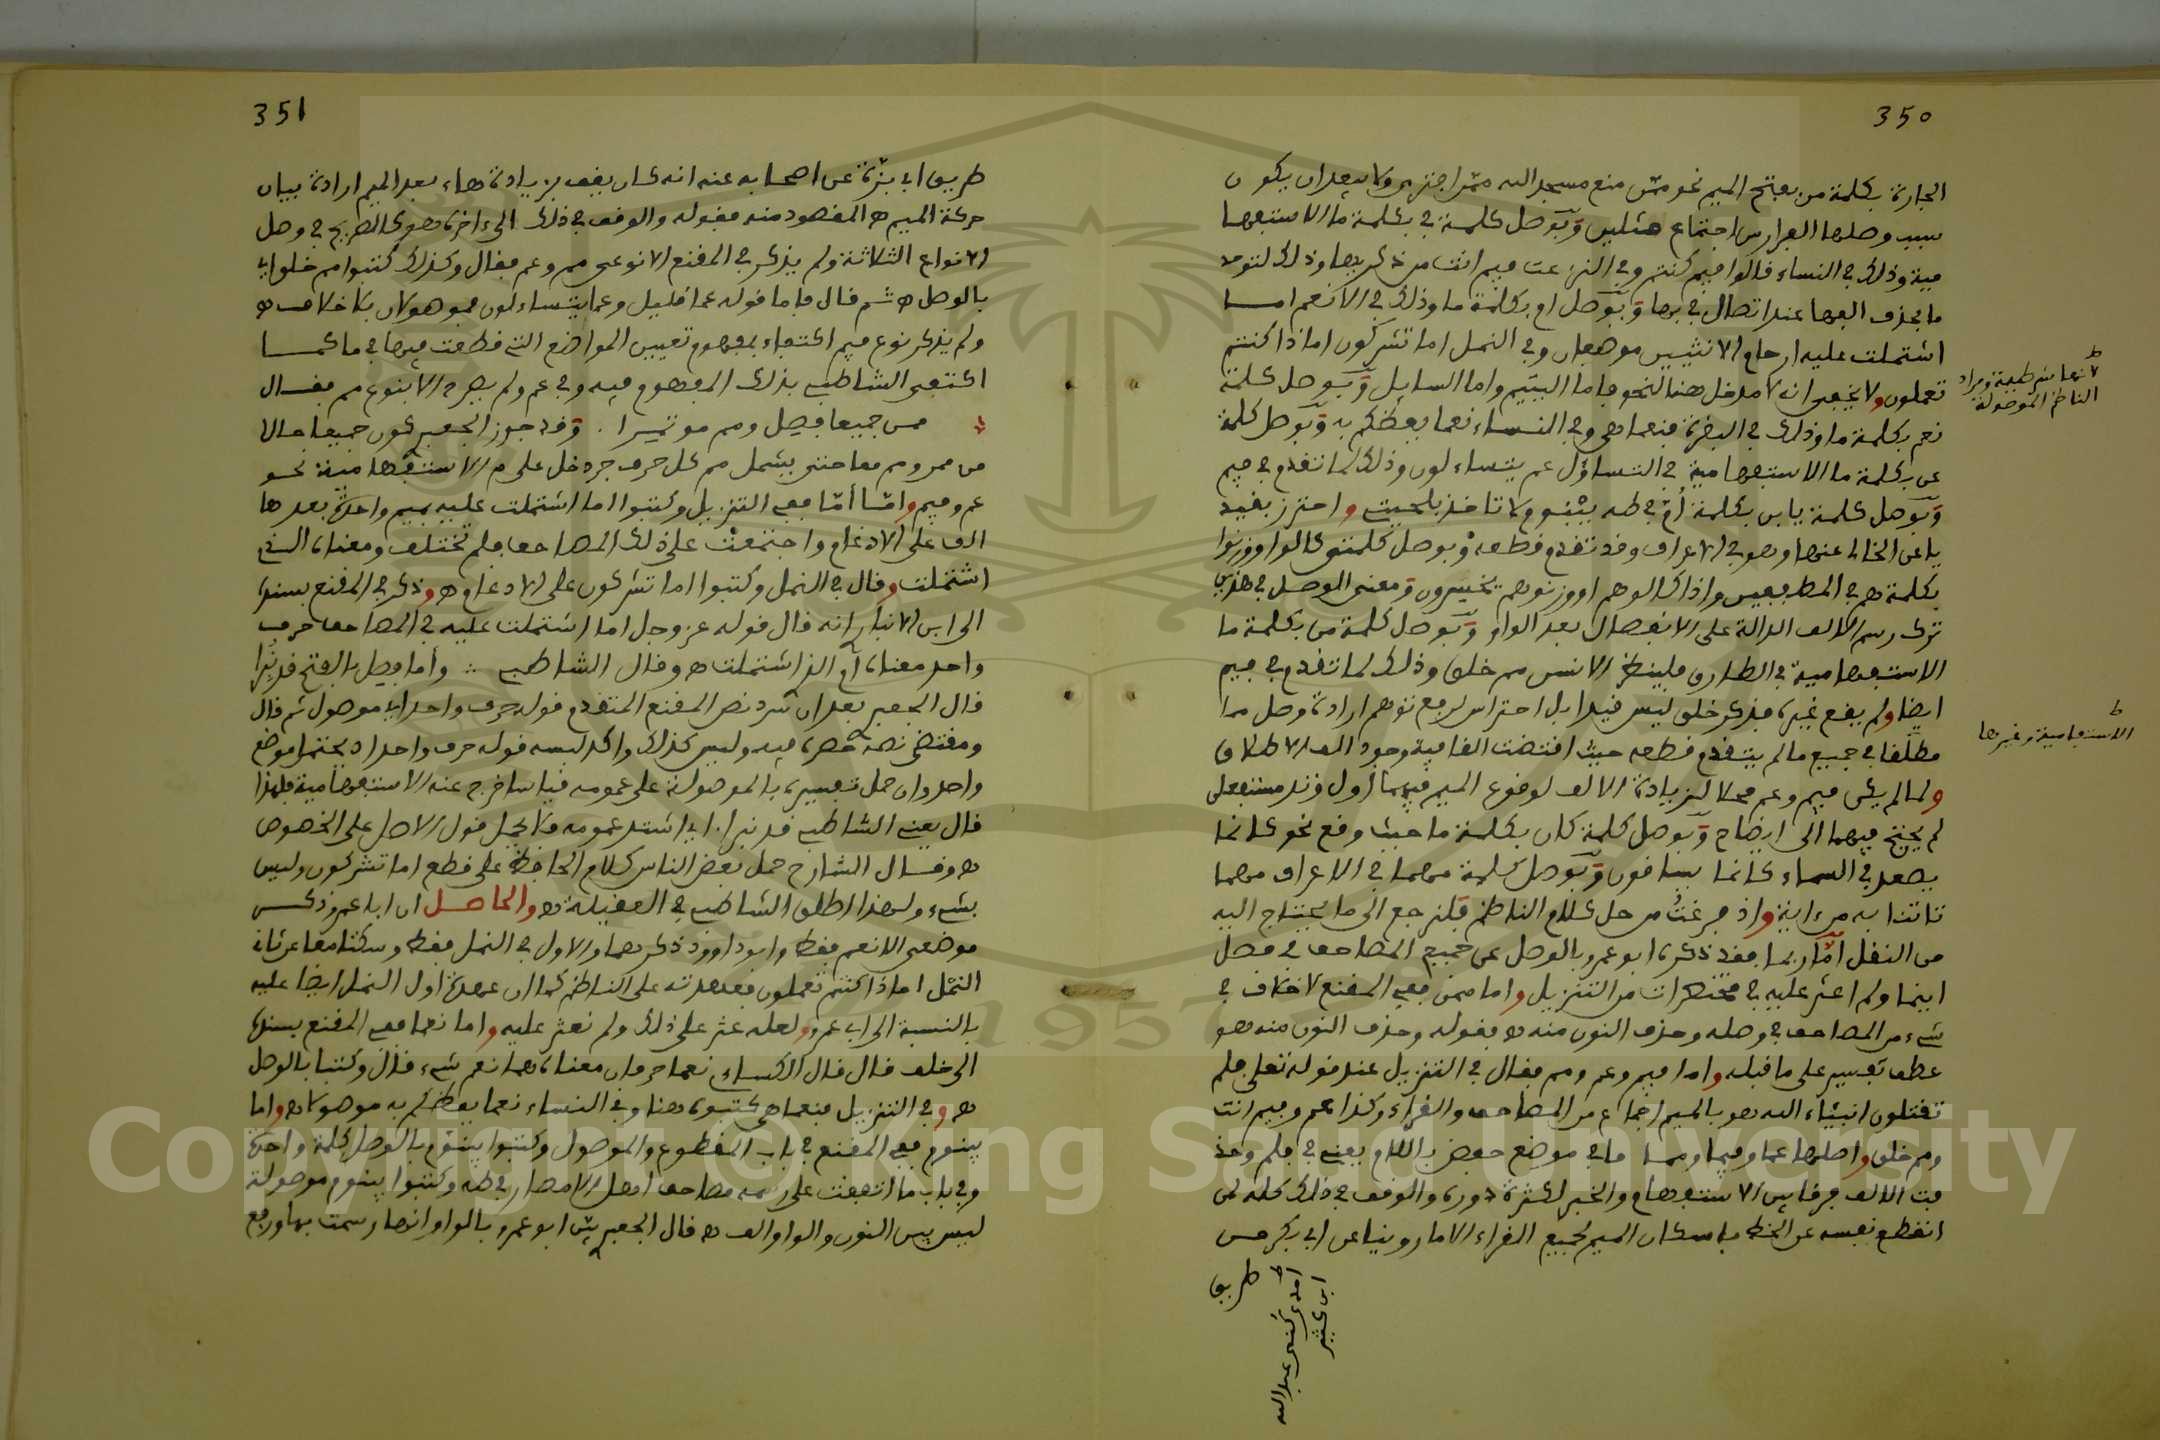 350
الجارة بكلمة من بفتح الميم نحو ممن منع مسجد الله ممن افترى ولا يبعد ان يكون
سبب وصلها الفرار من اجتماع مثلين وبوصل كلمة في بكلمة ما الاستفها
مية وذلك في النساء قالوا فيم كنتم وفي النزعت فيم انت من ذكريها وذلك
ما بحذف الفها عند اتصال في بها وبوصل ام بكلمة ما وذلك في الانعم اما
اشتملت عليه ارحام الانثيين موضعان وفي النمل اما تشركون اماذا كنتم
تعملون ولا يخفى ان لا مدخل هنا لنحو فاما اليتيم واما السايل وبوصل كلمة
نعم بكلمة ما وذلك في البقرة فنعما هي وفي النساء نعما يعظكم به وبوصل كلمة
عن بكلمة ما الاستفهامية في التساؤل عم يتساءلون وذلك لما تقدم في فيم
وبوصل كلمة يابن بكلمة أم في طه يبنؤم لا تاخذ بلحيتي واحترز بقيد
يا عن الخالي عنها وهو في الاعراف وقد تقدم قطعه وبوصل كلمتي كالوا ووزنوا
بكلمة هم في المطففين واذا كالوهم او وزنوهم يخسرون ومعنى الوصل في هذين
ترك رسم الالف الدالة على الانفصال بعد الواو وبوصل كلمة من بكلمة ما
الاستفهامية في الطارق فلينظر الانسن مم خلق وذلك لما تقدم في فيم
ايضا ولم يقع غيره فذكر خلق ليس قيدا بل احتراس لرفع توهم ارادة وصل مما
مطلقا في جميع ما لم يتقدم قطعه حيث اقتضت القافية وجود الف الاطلاق
ولما لم يكن فيم وعم محلا لزيادة الالف لوقوع الميم فيهما اول وتد مستفعلن
لم يحتج فيهما الى ايضاح وبوصل كلمة كان بكلمة ما حيث وقع نحو كانما
يصعد في السماء كانما يساقون وبوصل كلمة مهما في الاعراف مهما
تاتنا به من ءاية واذ فرغت من حل كلام الناظم فلنرجع الى ما يحتاج اليه
من النقل اما ربما فقد ذكره ابو عمرو بالوصل عن جميع المصاحف في فصل
اينما ولم اعثر عليه في مختصرات من التنزيل واما ممن ففي المقنع لا خلاف في
شيء من المصاحف في وصله وحذف النون منه ه فقوله وحذف النون منه هو
عطف تفسير على ما قبله واما فيم وعم ومم فقال في التنزيل عند قوله تعلى فلم
تقتلون انبئاء الله هو بالميم اجماع من المصاحف والقراء وكذا عم وفيم انت
ومم خلق واصلها عما وفيما ومما ما في موضع خفض باللام يعني في فلم وحذ
فت الالف فرقا بين الاستفهام والخبر لكثرة دوره والوقف في ذلك كله لمن
انقطع نفسه عن الخط باسكان الميم لجميع القراء الا ما روينا عن ابي بكر من
طريق
ابن كثير
الاستفهامية وغيرها
351
طريق ابي بزة عن اصحابه عنه انه كان يقف بزيادة هاء بعد الميم ارادة بيان
حركة الميم ه المقصود منه فقوله والوقف في ذلك الى ءاخره هو كالصريح في وصل
الانواع الثلاثة ولم يذكر في المقنع الا نوعي مم وعم فقال وكذلك كتبوا مم خلق اي
بالوصل ه ثم قال فاما قوله عما قليل وعما يتساءلون فموصولان بلا خلاف ه
ولم يذكر نوع فيم اكتفاء بمفهوم تعيين المواضع التي قطعت فيها في ما كما
اكتفى الشاطبي بذلك المفهوم فيه وفي عم ولم يصرح الا بنوع مم فقال
ممن جميعا فصل ومم موتمرا . وقد جوز الجعبري كون جميعا حالا
من ممن ومم معا حتى يشمل مم كل حرف جر دخل على م الاستفهامية نحو
عم وفيم واما أما ففي التنزيل وكتبوا اما اشتملت عليه بميم واحدة بعدها
الف على الادغام واجتمعت على ذلك المصاحف فلم تختلف ومعناه الذي
اشتملت وقال في النمل وكتبوا اما تشركون على الادغام ه وذكر في المقنع بسنده
الى ابن الانباري انه قال قوله عز وجل اما اشتملت عليه في المصاحف حرف
واحد معناه أم الذي اشتملت ه وقال الشاطبي وأما فصل بالفتح قد نبرا
قال الجعبري بعد ان سرد نص المقنع المتقدم قوله حرف واحد اي موصول ثم قال
ومقتضى نصه حصره فيه وليس كذلك واكد لبسه قوله حرف واحد اذ يحتمل موضع
واحد وان حمل تفسيره بالموصولة على عمومه قياسا خرج عنه الاستفهامية فلهذا
قال يعني الشاطبي قد نبرا اي اشتد عمومه فلا يحمل قول الاصل على الخصوص
ه وقال الشارح حمل بعض الناس كلام الحافظ على قطع اما تشركون وليس
بشيء ولهذا اطلق الشاطبي في العقيلة ه والحاصل ان ابا عمرو ذكر
موضعي الانعم فقط وابو داوود ذكرهما والاول في النمل فقط وسكتا معا عن ثاني
النمل اماذا كنتم تعملون فعهدته على الناظم كما ان عهدة اول النمل ايضا عليه
بالنسبة الى ابي عمرو ولعله عثر على ذلك ولم نعثر عليه واما نعما ففي المقنع بسنده
الى خلف قال قال الكساءي نعما حرفان معناه نعم شيء قال وكتبا بالوصل
ه وفي التنزيل فنعما هي كتبوه هنا وفي النساء نعما يعظكم به موصولا ه واما
يبنؤم ففي المقنع في باب المقطوع والموصول وكتبوا يبنؤم بالوصل كلمة واحدة
وفي باب ما اتفقت على رسمه مصاحف اهل الامصار في طه وكتبوا يبنؤم موصولة
ليس بين النون والواو الف ه قال الجعبري بين ابو عمرو بالواو انها رسمت بها ورفع
Copyright © King Saud University
1957